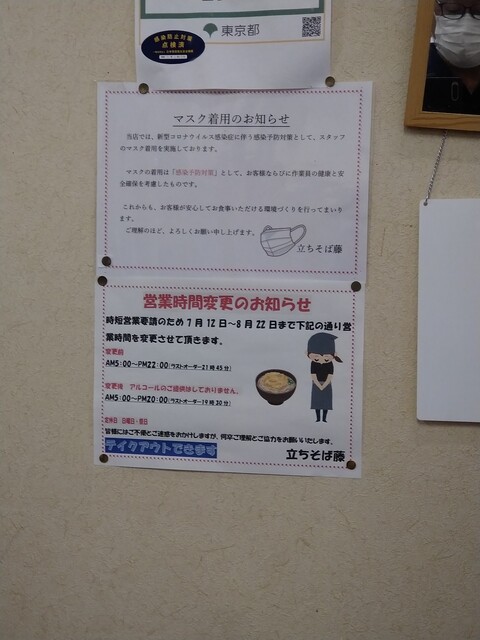 感染防止対策
点検済
東京都
マスク着用のお知らせ
当店では、新型コロナウイルス感染症に伴う感染予防対策として、スタッフ
のマスク着用を実施しております。
マスクの着用は「感染予防対策」として、お客様ならびに作業員の健康と安
全確保を考慮したものです。
これからも、お客様が安心してお食事いただける環境づくりを行ってまいり
ます。
ご理解のほど、よろしくお願い申し上げます。
立ちそば藤
営業時間変更のお知らせ
時短営業要請のため7月12日~8月22日まで下記の通り営
業時間を変更させて頂きます。
変更前
AM5:00~PM22:00(ラストオーダー21時45分)
変更後 アルコールのご提供はしておりません。
AM5:00~PM20:00(ラストオーダー19時30分)
定休日 日曜日・祭日
皆様にはご不便とご迷惑をおかけしますが、何卒ご理解とご協力をお願いいたします。
テイクアウトできます
立ちそば藤